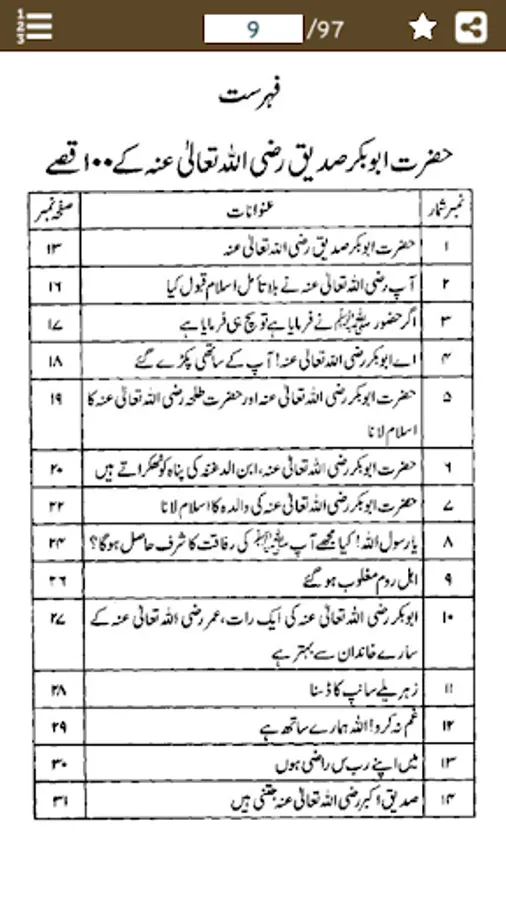 123
9 /97
فہرست
حضرت ابوبکر صدیق رضی اللہ تعالیٰ عنہ کے ۱۰۰ قصے
نمبر شمار عنوانات صفحہ نمبر
۱ حضرت ابوبکر صدیق رضی اللہ تعالیٰ عنہ ۱۳
۲ آپ رضی اللہ تعالیٰ عنہ نے بلا تأمل اسلام قبول کیا ۱۶
۳ اگر حضور ﷺ نے فرمایا ہے تو سچ ہی فرمایا ہے ۱۷
۴ اے ابوبکر رضی اللہ تعالیٰ عنہ! آپ کے ساتھی پکڑے گئے ۱۸
۵ حضرت ابوبکر رضی اللہ تعالیٰ عنہ اور حضرت طلحہ رضی اللہ تعالیٰ عنہ کا ۱۹
اسلام لانا
۶ حضرت ابوبکر رضی اللہ تعالیٰ عنہ، ابن الدغنہ کی پناہ کو ٹھکراتے ہیں ۲۰
۷ حضرت ابوبکر رضی اللہ تعالیٰ عنہ کی والدہ کا اسلام لانا ۲۲
۸ یا رسول اللہ! کیا مجھے آپ ﷺ کی رفاقت کا شرف حاصل ہوگا؟ ۲۴
۹ اہل روم مغلوب ہو گئے ۲۶
۱۰ ابوبکر رضی اللہ تعالیٰ عنہ کی ایک رات، عمر رضی اللہ تعالیٰ عنہ کے ۲۷
سارے خاندان سے بہتر ہے
۱۱ زہریلے سانپ کا ڈسنا ۲۸
۱۲ غم نہ کرو! اللہ ہمارے ساتھ ہے ۲۹
۱۳ میں اپنے رب س راضی ہوں ۳۰
۱۴ صدیق اکبر رضی اللہ تعالیٰ عنہ جنتی ہیں ۳۱